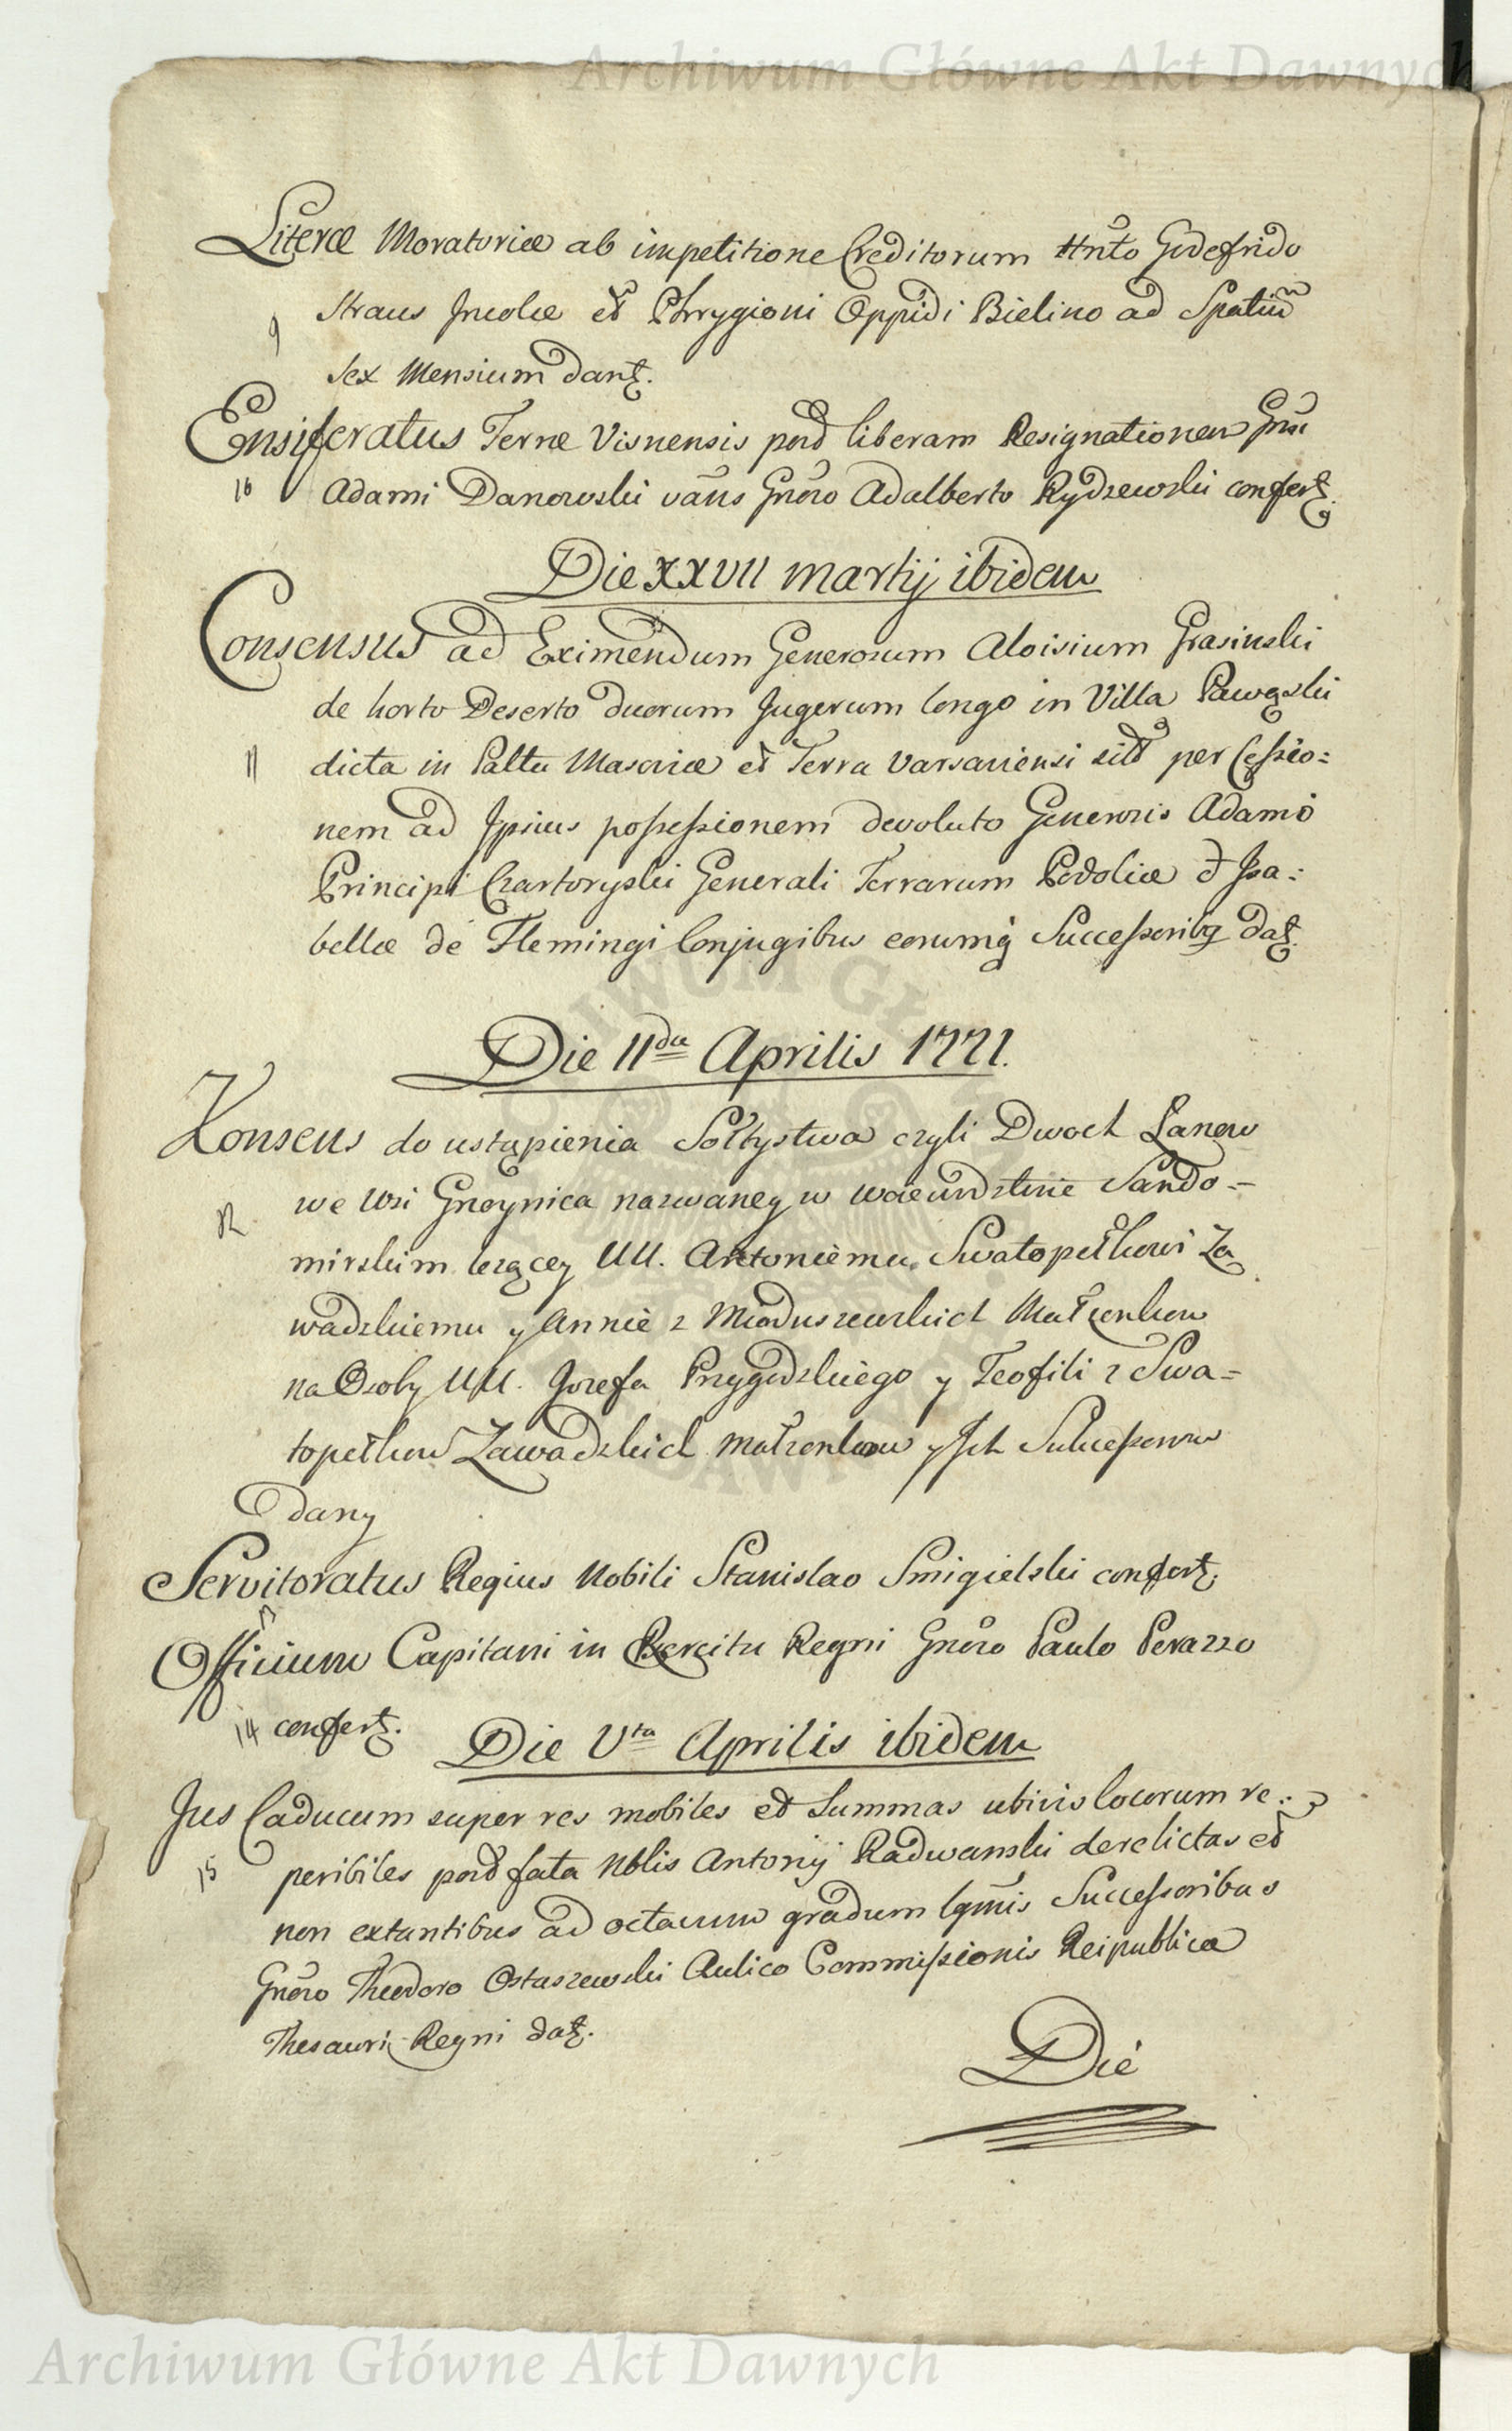 Archiwum Główne Akt Dawnych
Literæ Moratoriæ ab impetitione Creditorum Hnto Godefrido
9 Straus Incolæ et Phrygioni Oppidi Bielino ad Spatiū
sex Mensium dant̨.
Ensiferatus Terræ Visnensis post liberam Resignationem Gnsi
10 Adami Danowski vans Gnoro Adalberto Rydzewski confert̨.
Die XXVII martij ibidem
Consensus ad Eximendum Generosum Aloisium Grasinski
de horto Deserto duorum Jugerum longo in Villa Pawęzki
11 dicta in Paltu Masoviæ et Terra Varsaviensi sito per Cessio=
nem ad Ipsius possessionem devoluto Generosis Adamo
Principi Czartoryski Generali Terrarum Podoliæ et Isa=
bellæ de Flemingi Conjugibus eorumq̨ Successoribq̨ dat̨.
Die IIda Aprilis 1771.
Konsens do ustąpienia Sołtystwa czyli Dwoch Łanow
12 we Wsi Gnoynica nazwaney w woiewdztwie Sando=
mirskim lezącey UU. Antoniemu Swatopełkowi Za
wadzkiemu y Annie z Mioduszewskich Małzonkow
na Osoby UU. Jozefa Przygodzkiego y Teofili z Swa=
topełkow Zawadzkich małzonkow y Ich Sukcessorow
dany
Servitoratus Regius Nobili Stanislao Smigielski confert̨.
13
Officium Capitani in Exercitu Regni Gnoro Paulo Perazzo
14 confert̨.
Die Vta Aprilis ibidem
Jus Caducum super res mobiles et Summas ubivis locorum re=
15 peribiles post fata Nblis Antonij Radwanski derelictas et
non extantibus ad octavum gradum lgmis Successoribus
Gnoro Theodoro Ostaszewski Aulico Commissionis Reipublicæ
Thesauri Regni dat̨.
Die
Archiwum Główne Akt Dawnych